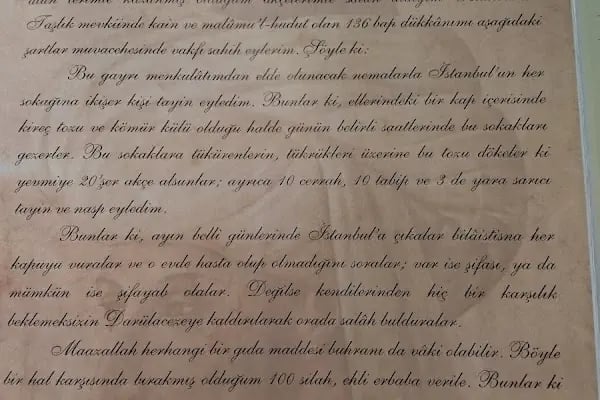 Taşlık mevkiinde kain ve malûmu'l-hudut olan 136 bap dükkânımı aşağıdaki
şartlar muvacehesinde vakfı sahih eylerim. Şöyle ki:
Bu gayrı menkulâtımdan elde olunacak nemalarla İstanbul'un her
sokağına ikişer kişi tayin eyledim. Bunlar ki, ellerindeki bir kap içerisinde
kireç tozu ve kömür külü olduğu halde günün belirli saatlerinde bu sokakları
gezerler. Bu sokaklara tükürenlerin, tükrükleri üzerine bu tozu dökeler ki
yevmiye 20'şer akçe alsunlar; ayrıca 10 cerrah, 10 tabip ve 3 de yara sarıcı
tayin ve nasp eyledim.
Bunlar ki, ayın belli günlerinde İstanbul'a çıkalar bilâistisna her
kapuyu vuralar ve o evde hasta olup olmadığını soralar; var ise şifası, ya da
mümkün ise şifayab olalar. Değilse kendilerinden hiç bir karşılık
beklemeksizin Darülacezeye kaldırılarak orada salâh bulduralar.
Maazallah herhangi bir gıda maddesi buhranı da vâki olabilir. Böyle
bir hal karşısında bırakmış olduğum 100 silah, ehli erbaba verile. Bunlar ki